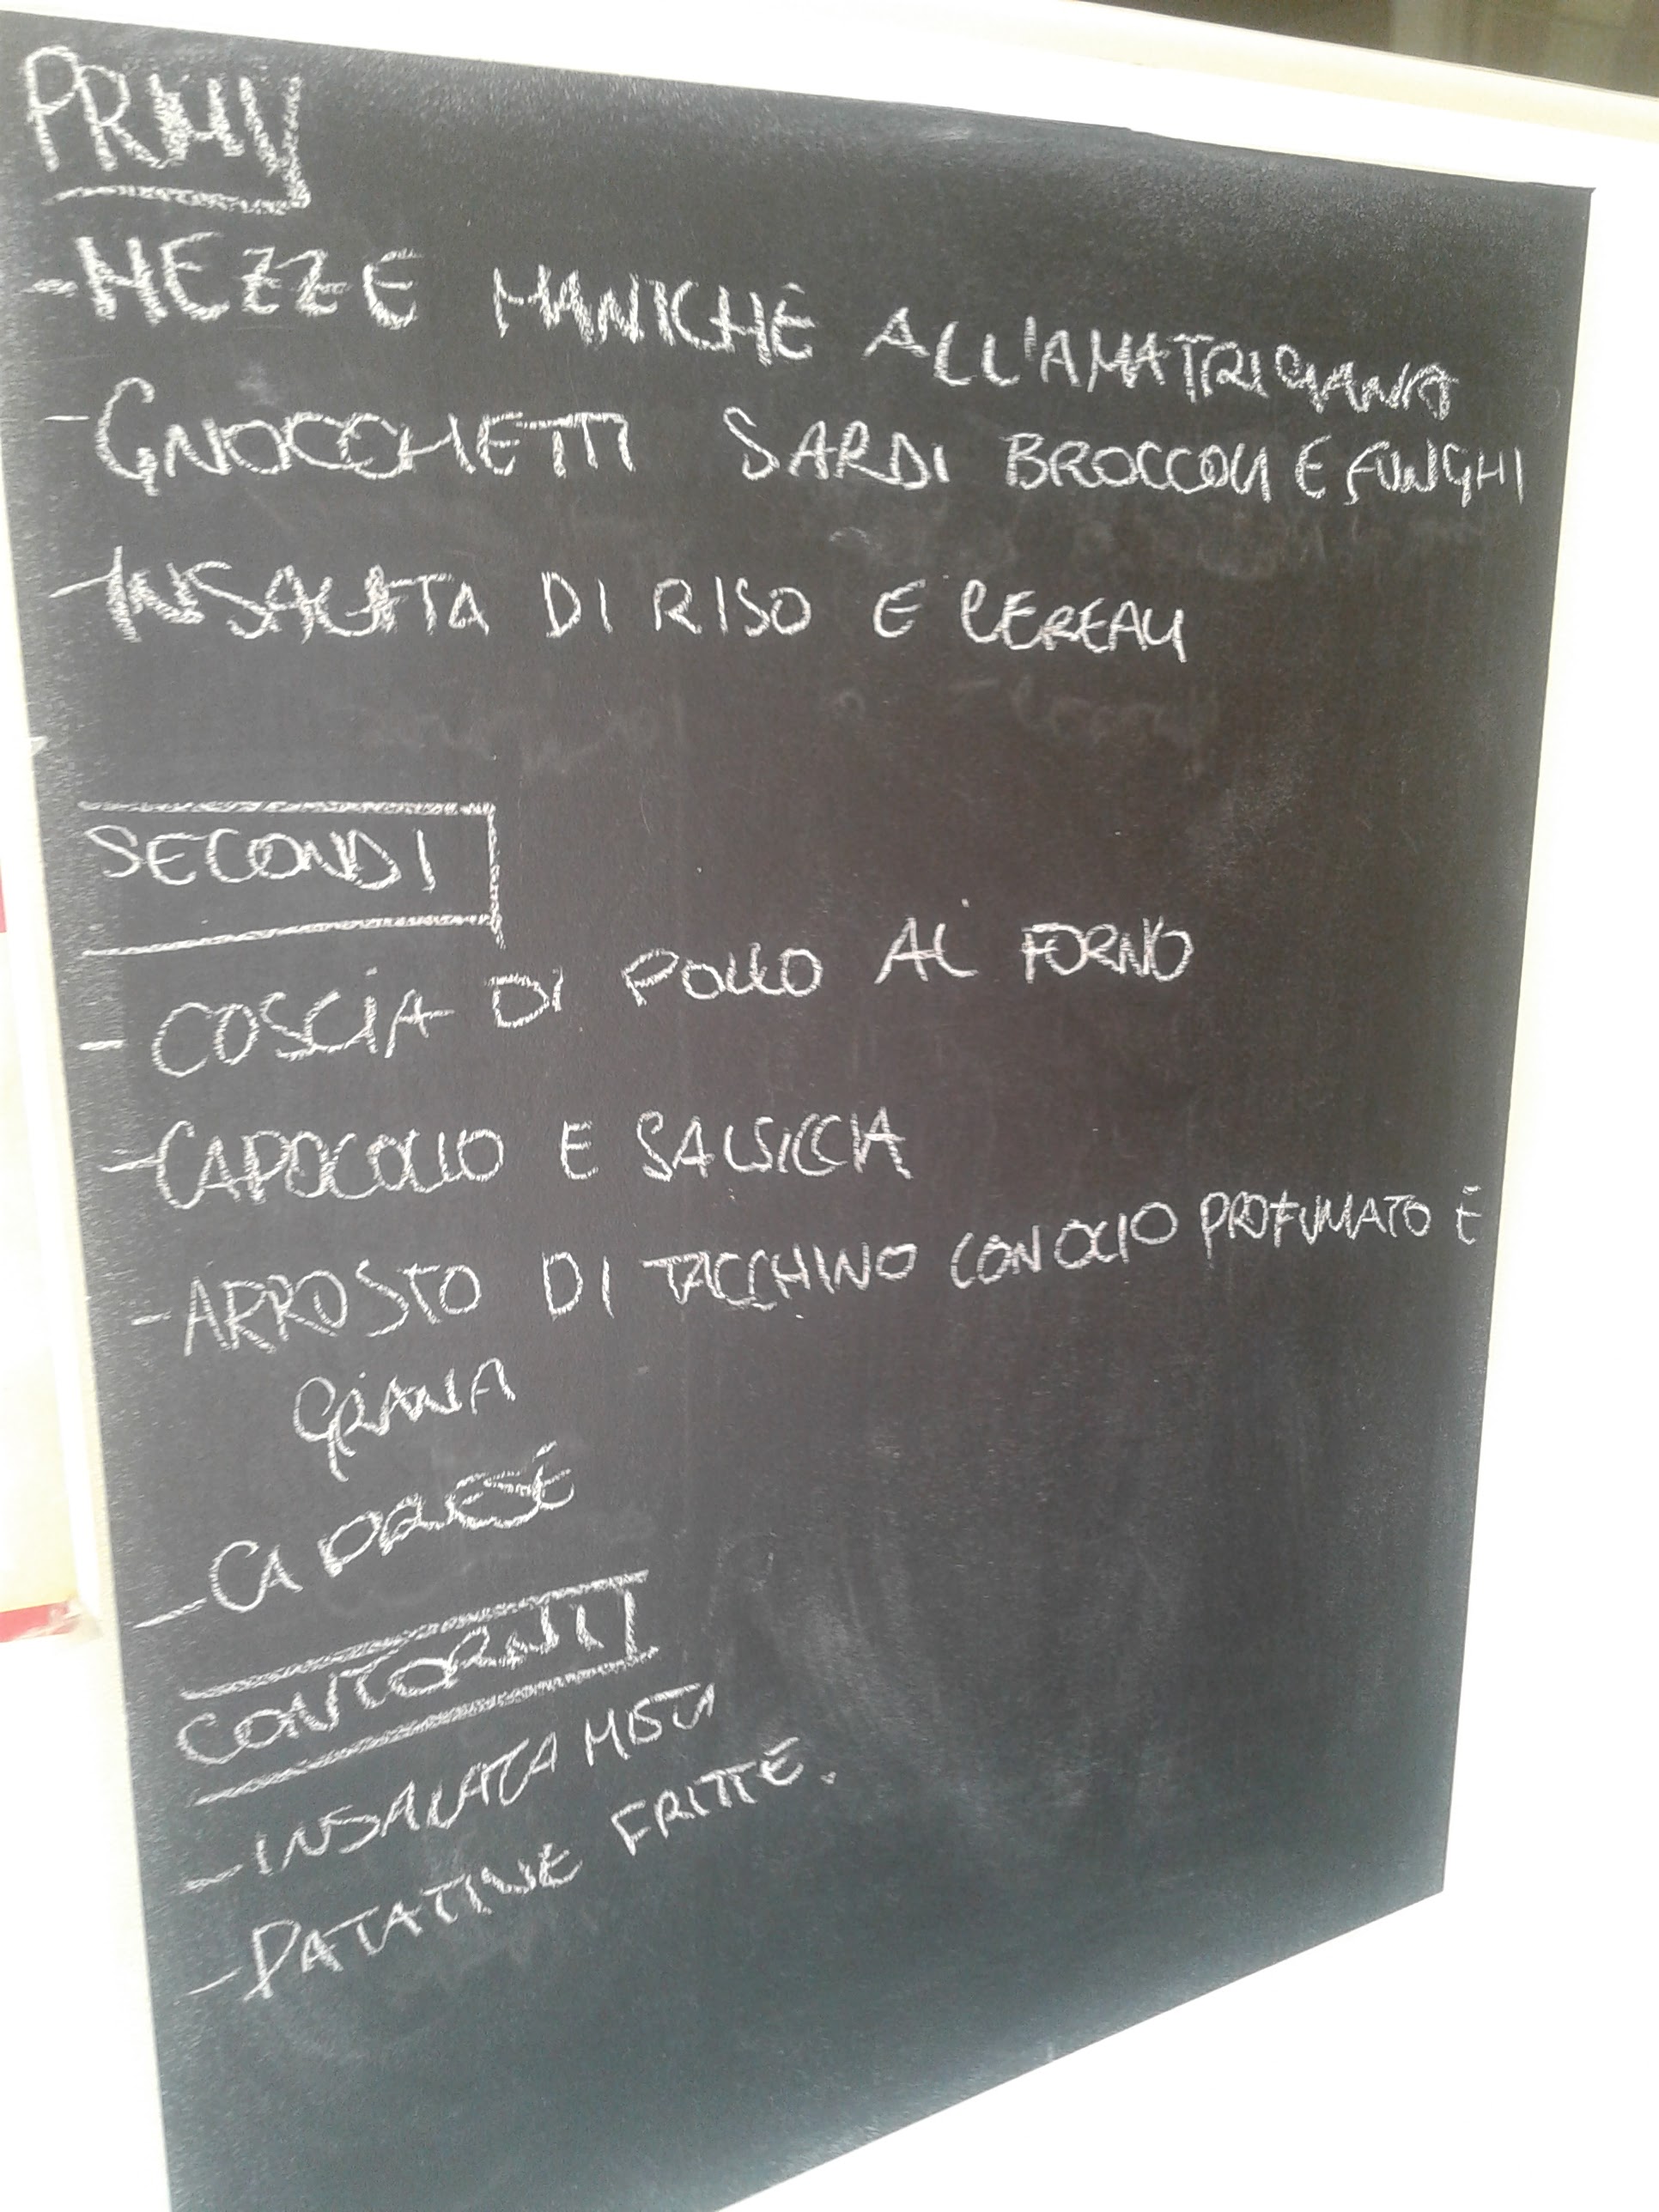 PRIMI
- MEZZE MANICHE ALL'AMATRICIANA
- GNOCCHETTI SARDI BROCCOLI E FUNGHI
- INSALATA DI RISO E CEREALI
SECONDI
- COSCIA DI POLLO AL FORNO
- CAPOCOLLO E SALSICCIA
- ARROSTO DI TACCHINO CON OLIO PROFUMATO E
GRANA
- CAPRESE
CONTORNI
- INSALATA MISTA
- PATATINE FRITTE.